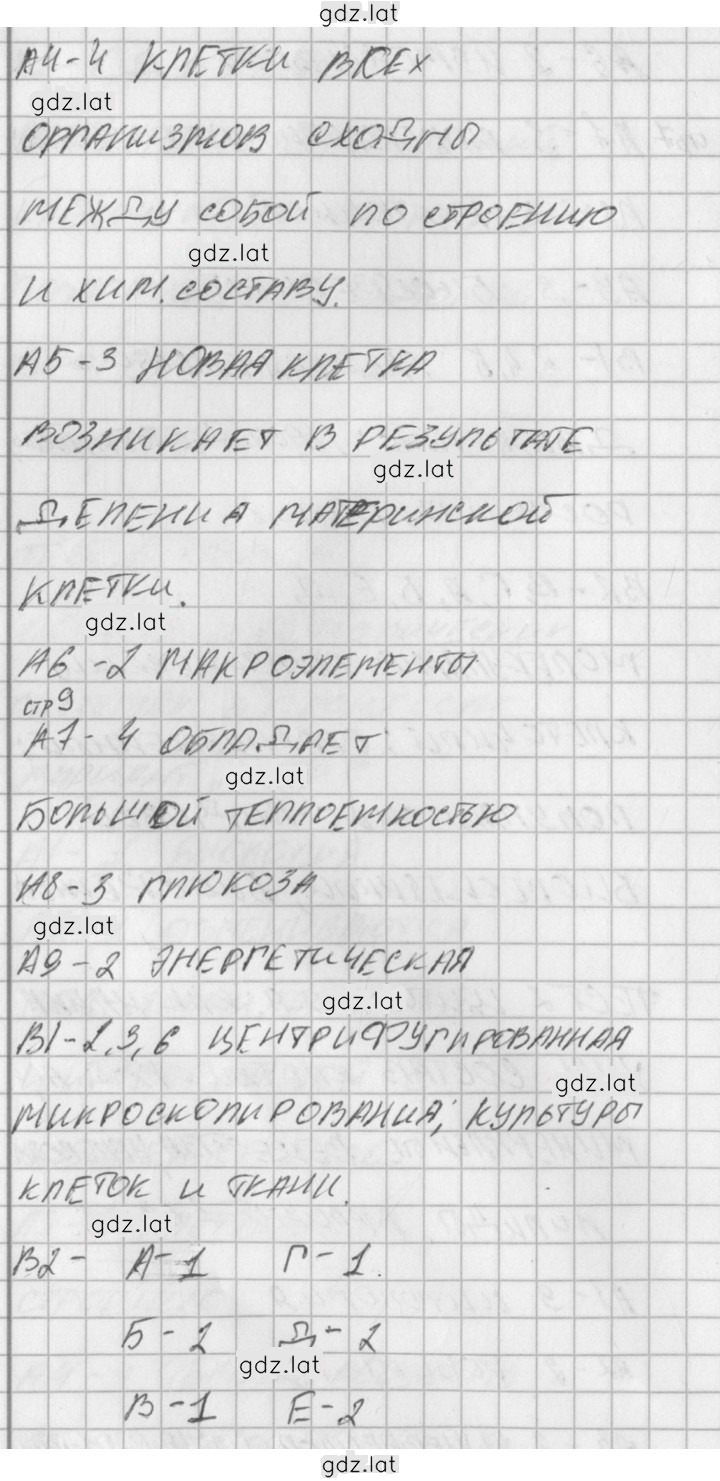 gdz.lat
А4-4 КЛЕТКИ ВСЕХ
gdz.lat
ОРГАНИЗМОВ СХОДНЫ
МЕЖДУ СОБОЙ ПО СТРОЕНИЮ
gdz.lat
И ХИМ. СОСТАВУ.
А5-3 НОВАЯ КЛЕТКА
ВОЗНИКАЕТ В РЕЗУЛЬТАТЕ
gdz.lat
ДЕЛЕНИЯ МАТЕРИНСКОЙ
КЛЕТКИ.
gdz.lat
А6-2 МАКРОЭЛЕМЕНТЫ
стр 9
А7-4 ОБЛАДАЕТ
gdz.lat
БОЛЬШОЙ ТЕПЛОЕМКОСТЬЮ
А8-3 ГЛЮКОЗА
gdz.lat
А9-2 ЭНЕРГЕТИЧЕСКАЯ
gdz.lat
В1-2,3,6 ЦЕНТРИФУГИРОВАННАЯ
gdz.lat
МИКРОСКОПИРОВАНИЯ; КУЛЬТУРЫ
КЛЕТОК И ТКАНИ.
gdz.lat
В2- А-1 Г-1.
Б-2 Д-2
gdz.lat
В-1 Е-2
gdz.lat